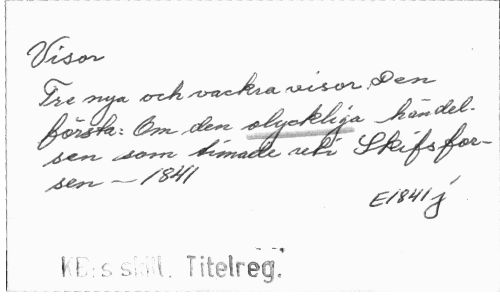 Visor
Tre nya och vackra visor. Den
första: Om den olyckliga händel-
sen som timade uti Skifsfor-
sen – 1841
E1841j
KB:s skill. Titelreg.